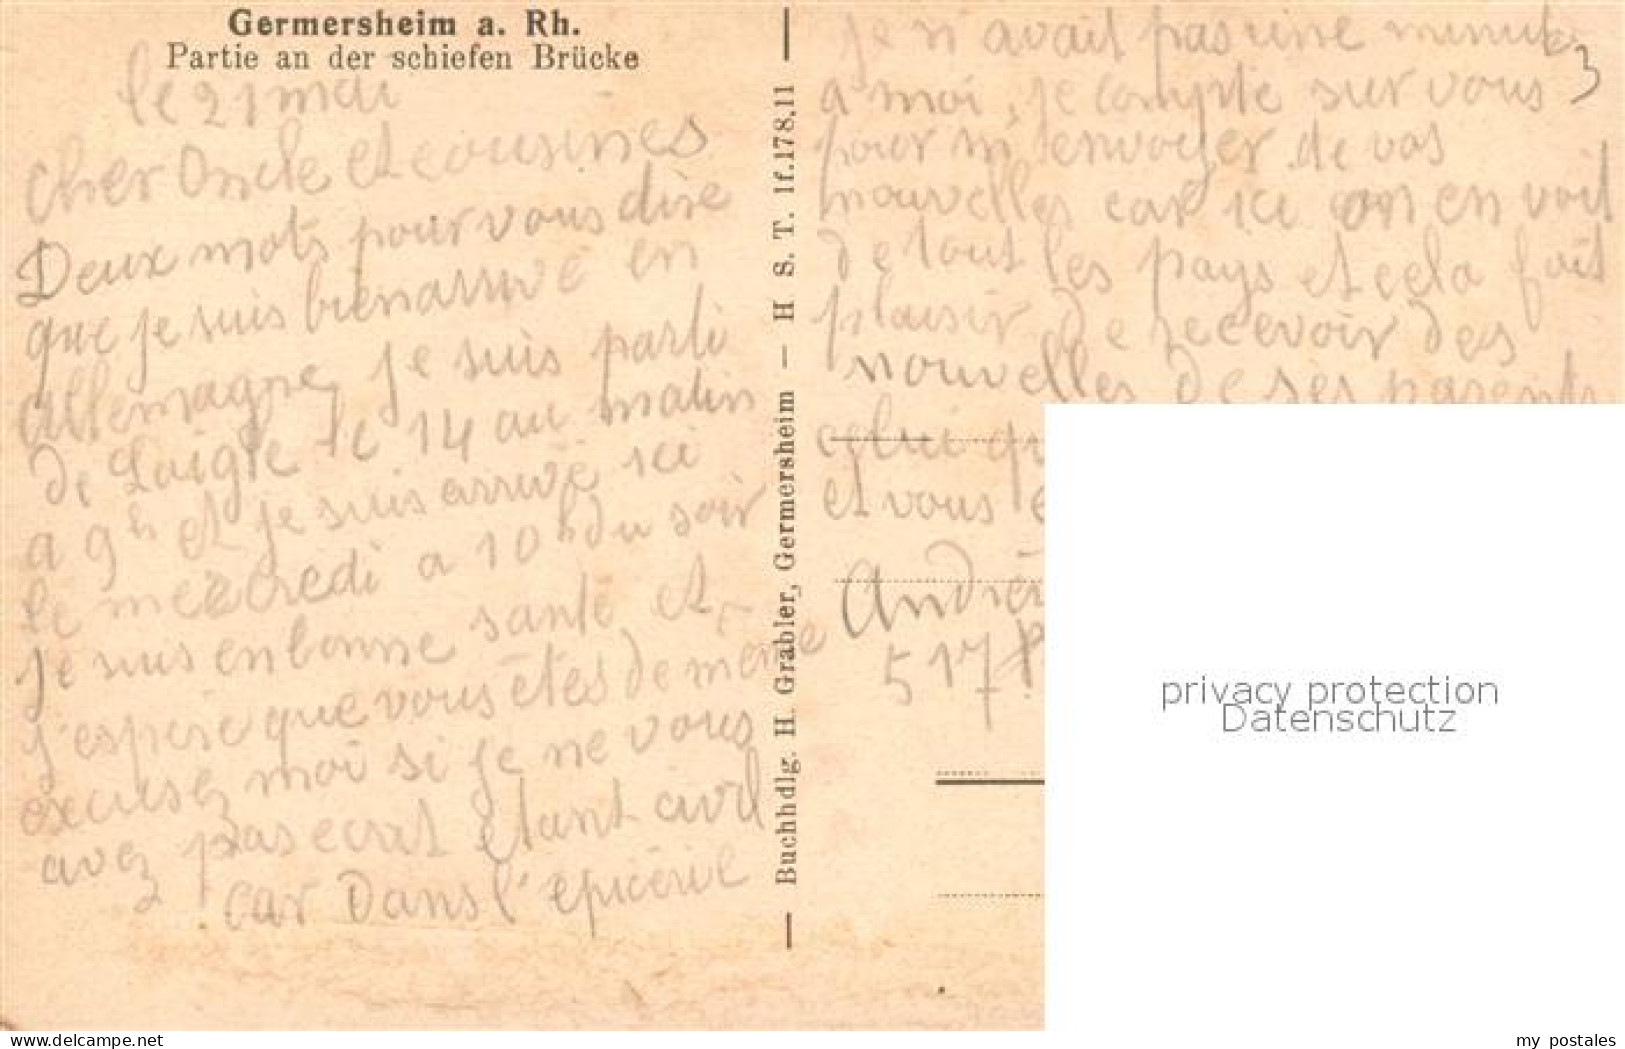 Germersheim a. Rh.
Partie an der schiefen Brücke
le 21 mai
cher Oncle et cousines
Deux mots pour vous dire
que je suis bien arrivé en
allemagne, je suis parti
de Laigle le 14 au matin
a 9h et je suis arrivé ici
le mercredi a 10h du soir
je suis en bonne santé et
j'espere que vous êtes de meme
excusez moi si je ne vous
avez pas ecrit etant civil
car dans l'épicerie
Buchhdlg. H. Grabler, Germersheim — H S. T. lf.178,11
je n'avait pas une minute
3
a moi, je compte sur vous
pour m'envoyer de vos
nouvelles car ici on en voit
de tout les pays et cela fait
plaisir de recevoir des
nouvelles de ses parents
celui
et vous
André
517
privacy protection
Datenschutz
www.delcampe.net
my_postales